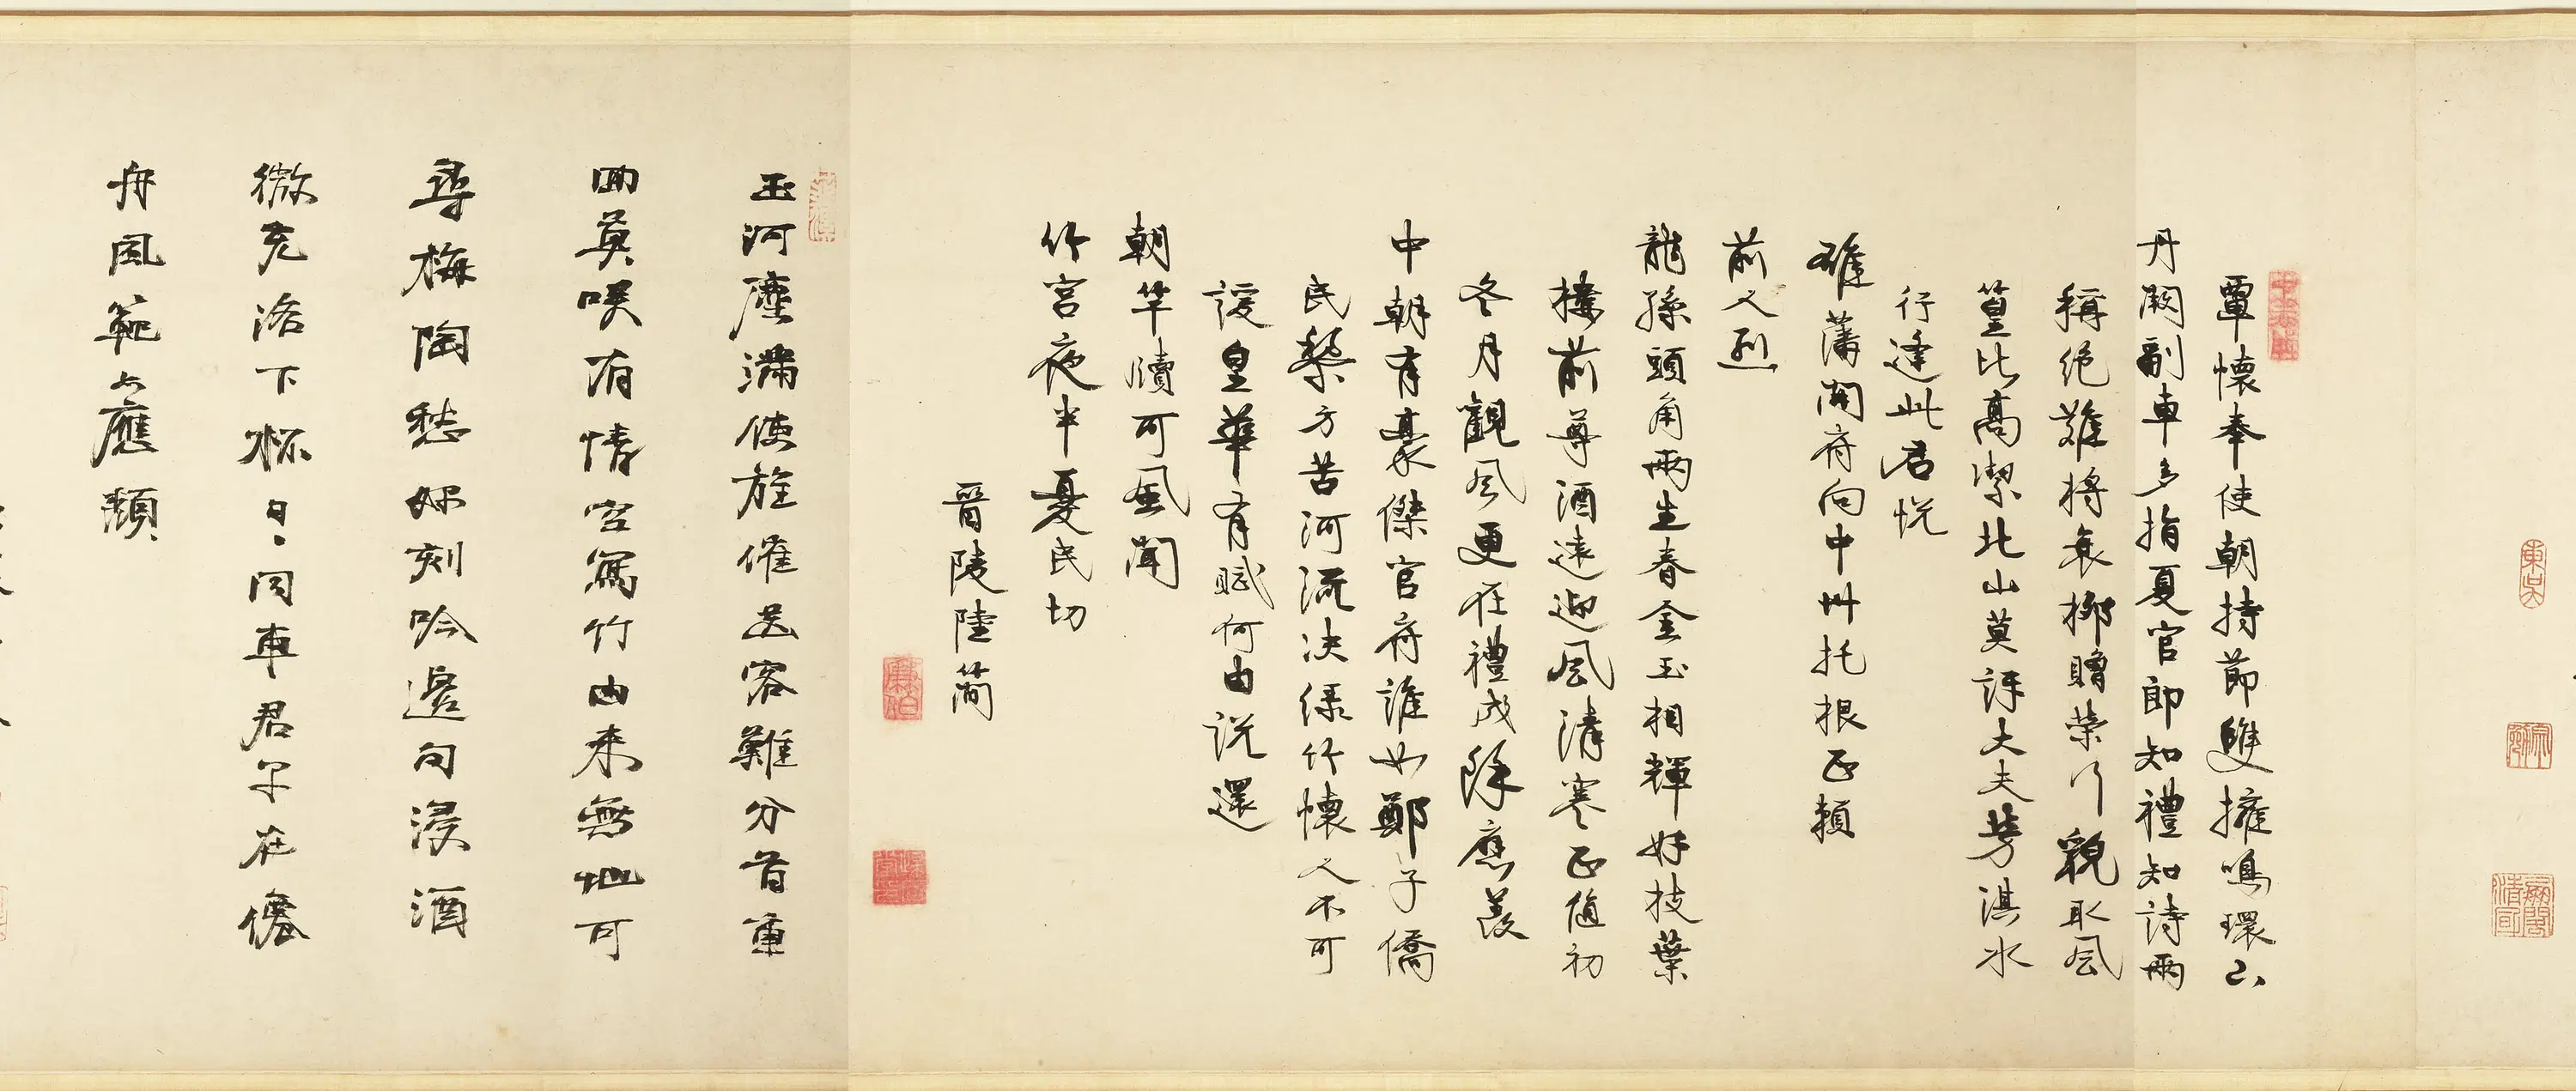 覃懷奉使朝持節雙擁鳴環上
丹闕副車多指夏官郎知禮知詩兩
稱絕難將衰柳贈榮行貌取風
篁比高潔北山莫訝大夫勞淇水
行逢此君悅
離蒲開府向中州托根正賴
前人烈
龍孫頭角兩生春金玉相輝好枝葉
樓前尊酒遠迎風清寒正值初
冬月觀風更在禮成除應羨
中朝有豪傑官府誰如鄭子僑
民黎方苦河流決綠竹懷人不可
諼皇華有賦何由說還
朝竿牘可風聞
竹宮夜半憂民切
晉陵陸簡
玉河塵滿使旌催送客難分首重
回莫嘆有情空寫竹由來無地可
尋梅陶愁好刻吟邊句浸酒
微充洛下杯日日同車君子在僊
舟風範與應頹